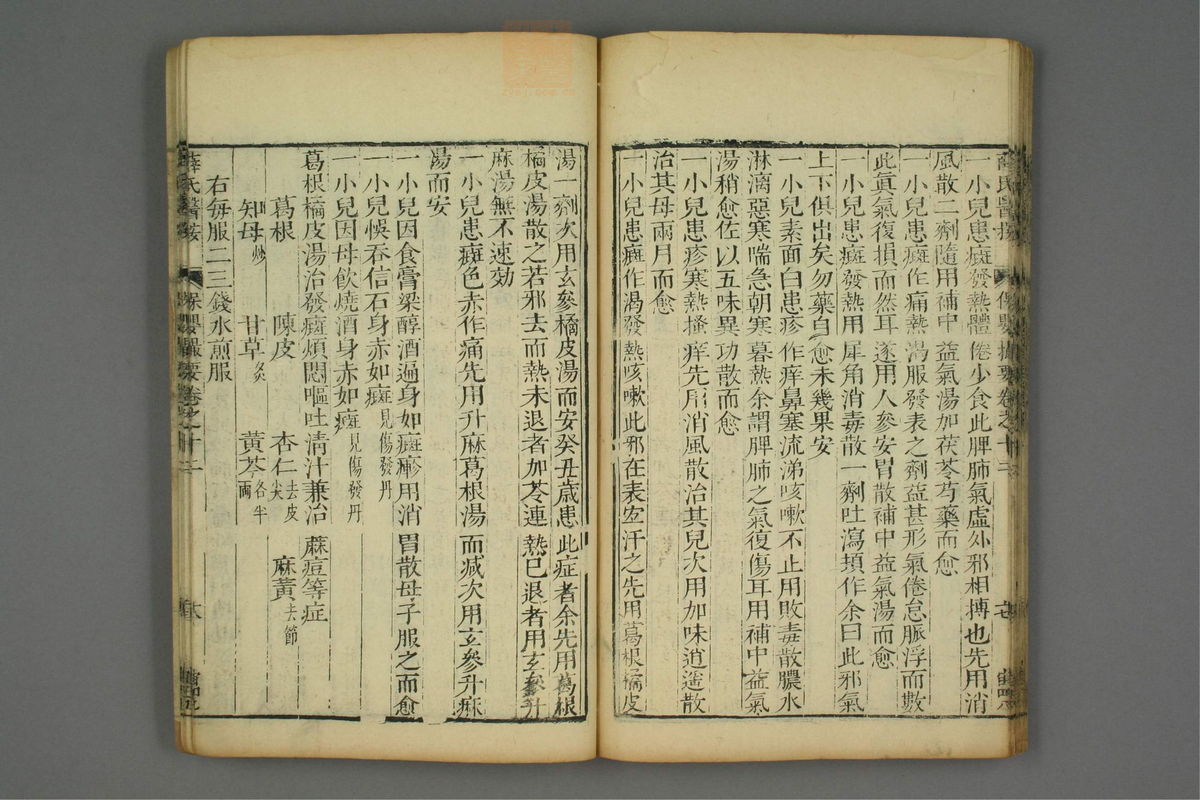 一小兒患癍發熱體倦少食此脾肺氣虛外邪相搏也先用消
風散二劑隨用補中益氣湯加茯苓芍藥而愈
一小兒患癍作痛熱渴服發表之劑益甚形氣倦怠脈浮而數
此眞氣復損而然耳遂用人參安胃散補中益氣湯而愈
一小兒患癍發熱用犀角消毒散一劑吐瀉頓作余曰此邪氣
上下俱出矣勿藥自愈未幾果安
一小兒素面白患疹作痒鼻塞流涕咳嗽不止用敗毒散膿水
淋漓惡寒喘急朝寒暮熱余謂脾肺之氣復傷耳用補中益氣
湯稍愈佐以五味異功散而愈
一小兒患疹寒熱搔痒先用消風散治其兒次用加味逍遙散
治其母兩月而愈
一小兒患癍作渴發熱咳嗽此邪在表宜汗之先用葛根橘皮
湯一劑次用玄參橘皮湯而安癸丑歲患此症者余先用葛根
橘皮湯散之若邪去而熱未退者加芩連熱已退者用玄參升
麻湯無不速効
一小兒患癍色赤作痛先用升麻葛根湯而減次用玄參升麻
湯而安
一小兒因食膏梁醇酒遍身如癍瘮用消胃散母子服之而愈
一小兒悞吞信石身赤如癍見傷發丹
一小兒因母飲燒酒身赤如癍見傷發丹
葛根橘皮湯治發癍煩悶嘔吐清汁兼治蔴痘等症
葛根 陳皮 杏仁去皮尖 麻黃去節
知母炒 甘草炙 黃芩各半兩
右每服二三錢水煎服
薛氏醫按 保嬰撮要卷之十二